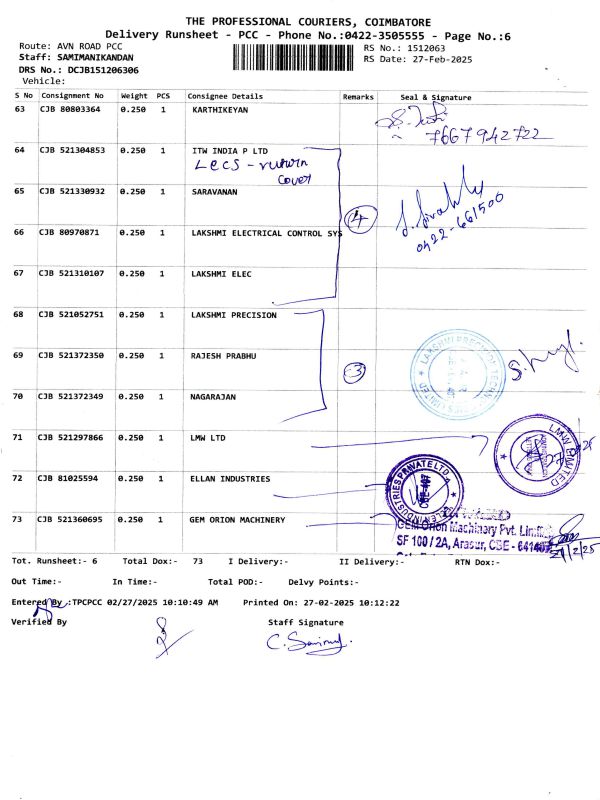 THE PROFESSIONAL COURIERS, COIMBATORE
Delivery Runsheet - PCC - Phone No.:0422-3505555 - Page No.:6
Route: AVN ROAD PCC
RS No.: 1512063
Staff: SAMIMANIKANDAN
RS Date: 27-Feb-2025
DRS No.: DCJB151206306
Vehicle:
S No Consignment No Weight PCS Consignee Details Remarks Seal & Signature
63 CJB 80803364 0.250 1 KARTHIKEYAN
7667942722
64 CJB 521304853 0.250 1 ITW INDIA P LTD
LECS - return
cover
65 CJB 521330932 0.250 1 SARAVANAN
4
0422-661500
66 CJB 80970871 0.250 1 LAKSHMI ELECTRICAL CONTROL SYS
67 CJB 521310107 0.250 1 LAKSHMI ELEC
68 CJB 521052751 0.250 1 LAKSHMI PRECISION
69 CJB 521372350 0.250 1 RAJESH PRABHU
3
70 CJB 521372349 0.250 1 NAGARAJAN
71 CJB 521297866 0.250 1 LMW LTD
LMW LIMITED
72 CJB 81025594 0.250 1 ELLAN INDUSTRIES
73 CJB 521360695 0.250 1 GEM ORION MACHINERY
GEM Orion Machinery Pvt. Limited
SF 100 / 2A, Arasur, CBE - 641407
Tot. Runsheet:- 6 Total Dox:- 73 I Delivery:- II Delivery:- RTN Dox:-
Out Time:- In Time:- Total POD:- Delvy Points:-
Entered By :TPCPCC 02/27/2025 10:10:49 AM Printed On: 27-02-2025 10:12:22
Verified By Staff Signature